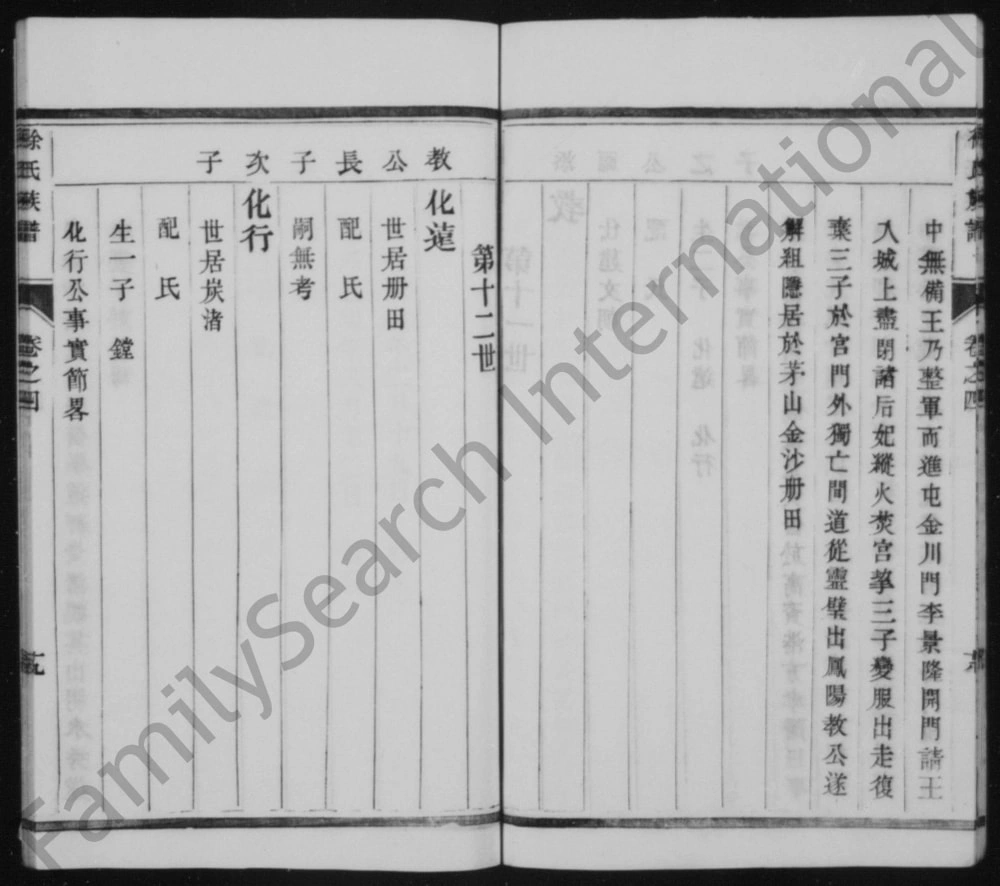 中無備王乃整軍而進屯金川門李景隆開門請王
入城上盡閉諸后妃縱火焚宮挈三子變服出走復
棄三子於宮門外獨亡間道從靈璧出鳳陽教公遂
解組隱居於茅山金沙册田
第十二世
教 化蓮
公 世居册田
長 配 氏
子 嗣無考
次 化行
子 世居炭渚
配 氏
生一子 鏜
化行公事實節畧
徐氏族譜 卷之四
FamilySearch International